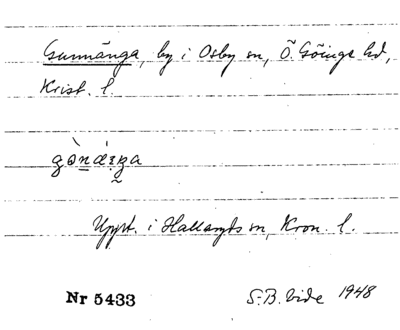 Gunnänga, by i Osby sn, Ö. Göinge hd,
Krist. l.
gònǽŋa
Uppt. i Hallaryds sn, Kron. l.
Nr 5433 S.-B. Vide 1948